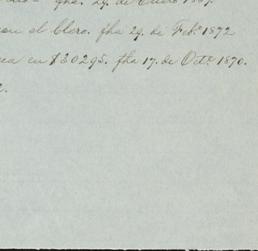 fha. 29. de Enero 1867.
en el Clero. fha 29. de Feb.º 1872
en $30295. fha 17. de Oct.e 1870.